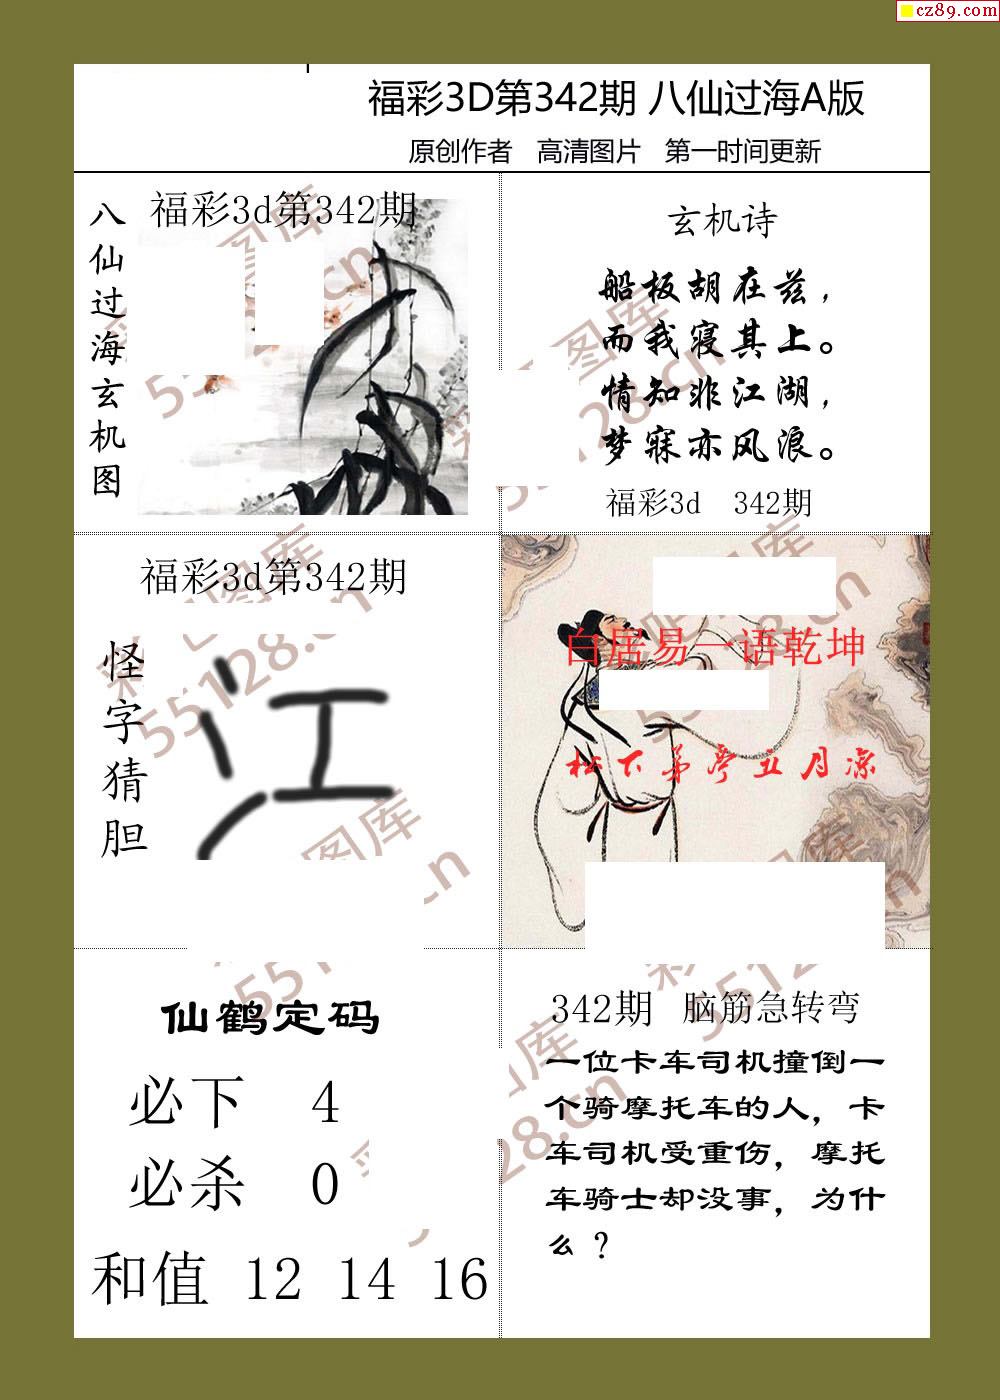 cz89.com
福彩3D第342期 八仙过海A版
原创作者 高清图片 第一时间更新
八仙过海玄机图
福彩3d第342期
玄机诗
船板胡在兹，
而我寝其上。
情知非江湖，
梦寐亦风浪。
福彩3d 342期
福彩3d第342期
怪字猜胆
江
白居易一语乾坤
松下第廖五月凉
仙鹤定码
必下 4
必杀 0
和值 12 14 16
342期 脑筋急转弯
一位卡车司机撞倒一
个骑摩托车的人，卡
车司机受重伤，摩托
车骑士却没事，为什
么？